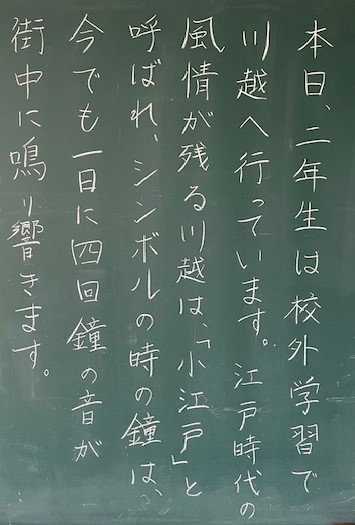 本日、二年生は校外学習で
川越へ行っています。江戸時代の
風情が残る川越は、「小江戸」と
呼ばれ、シンボルの時の鐘は、
今でも一日に四回鐘の音が
街中に鳴り響きます。